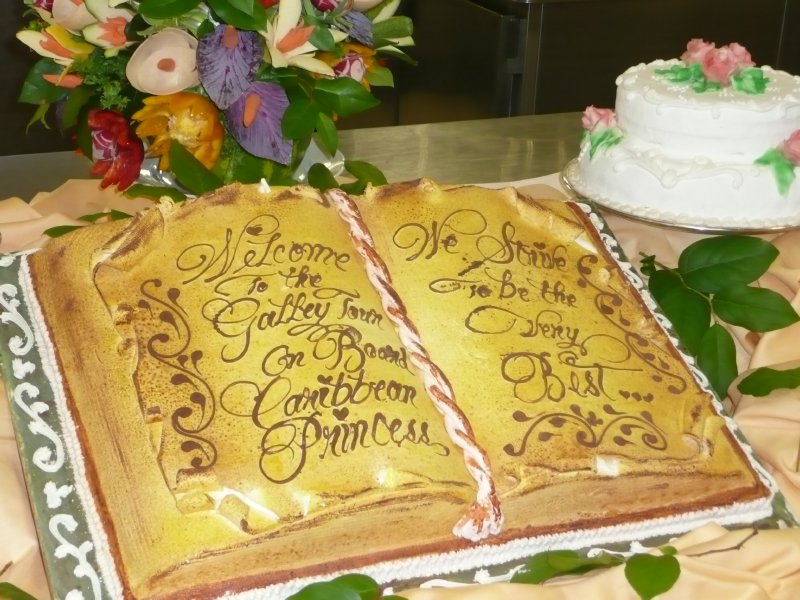 Welcome
To the
Galley Tour
on Board
Caribbean
Princess
We Strive
To be the
Very
Best...